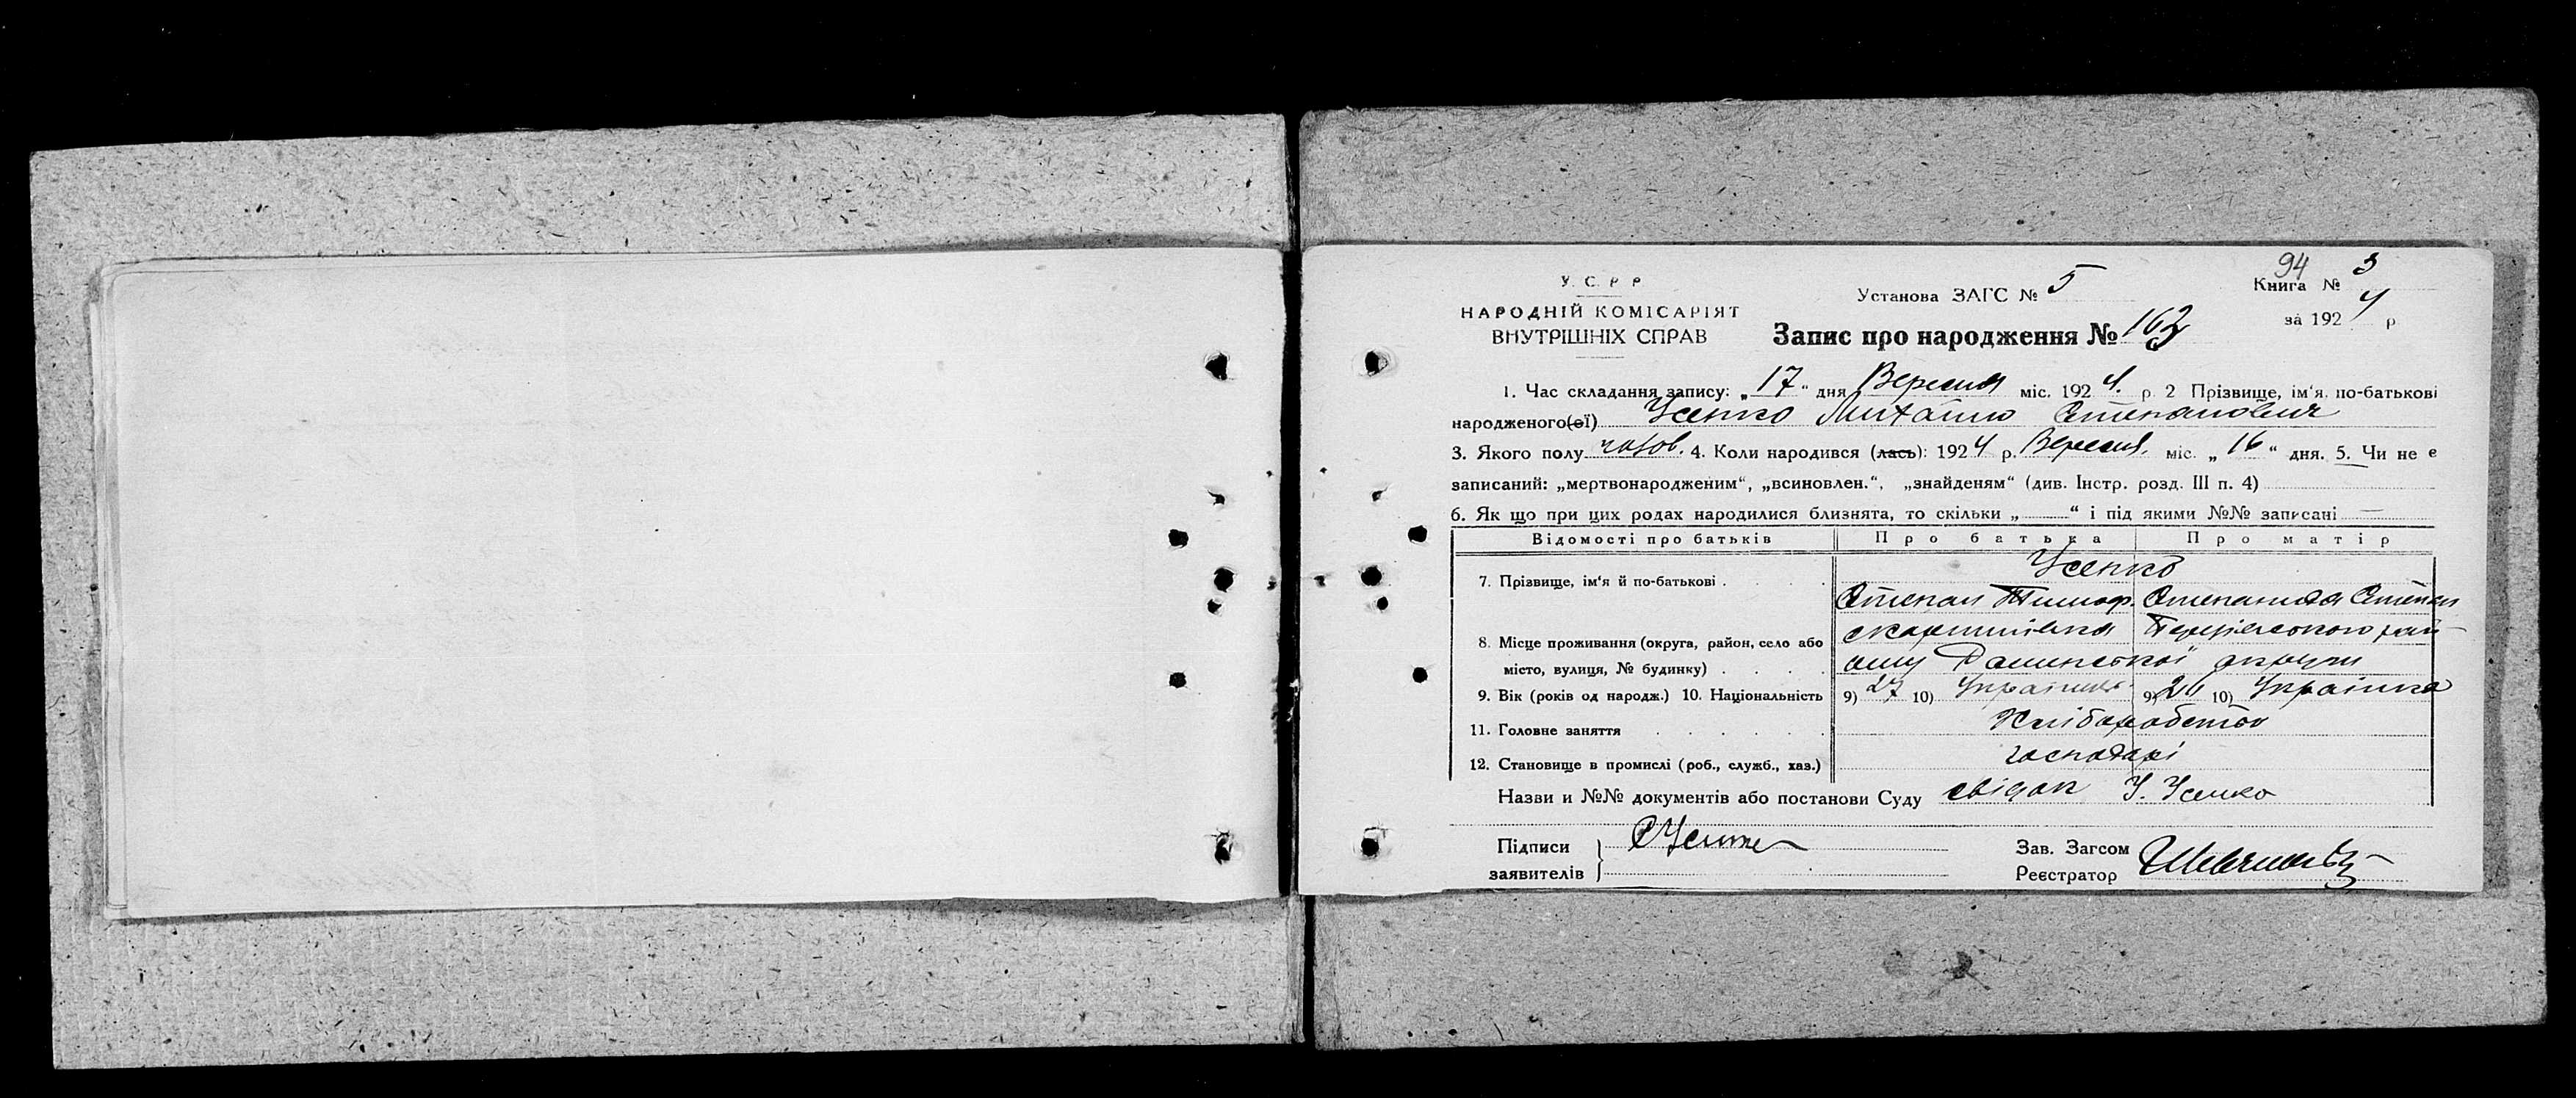 94
У. С. Р. Р.
Установа ЗАГС № 5
Книга № 3
НАРОДНІЙ КОМІСАРІЯТ
ВНУТРІШНІХ СПРАВ
за 1924 р
Запис про народження № 163
1. Час складання запису: „17“ дня Вересня міс. 1924. р. 2 Прізвище, ім‘я, по-батькові
народженого(ої) Усенко Михайло Степанович
3. Якого полу чолов. 4. Коли народився (лась): 1924 р. Вересня. міс. „16“ дня. 5. Чи не є
записаний: „мертвонародженим“, „всиновлен.“, „знайденям“ (див. Інстр. розд. III п. 4)
6. Як що при цих родах народилися близнята, то скільки „—“ і під якими №№ записані —
Відомості про батьків Про батька Про матір
7. Прізвище, ім‘я й по-батькові . Усенко
Степан Тимоф. Степанида Степан
8. Місце проживання (округа, район, село або
місто, вулиця, № будинку) . . . ону Роменської округи
9. Вік (років од народж.) 10. Національність 9) 27 10) Українець 9) 26 10) Українка
11. Головне заняття . . . . . . Хліборобство
12. Становище в промислі (роб., служб., хаз.) господарі
Назви и №№ документів або постанови Суду свідок У. Усенко
Підписи
заявителів
СУсенко
Зав. Загсом
Реєстратор